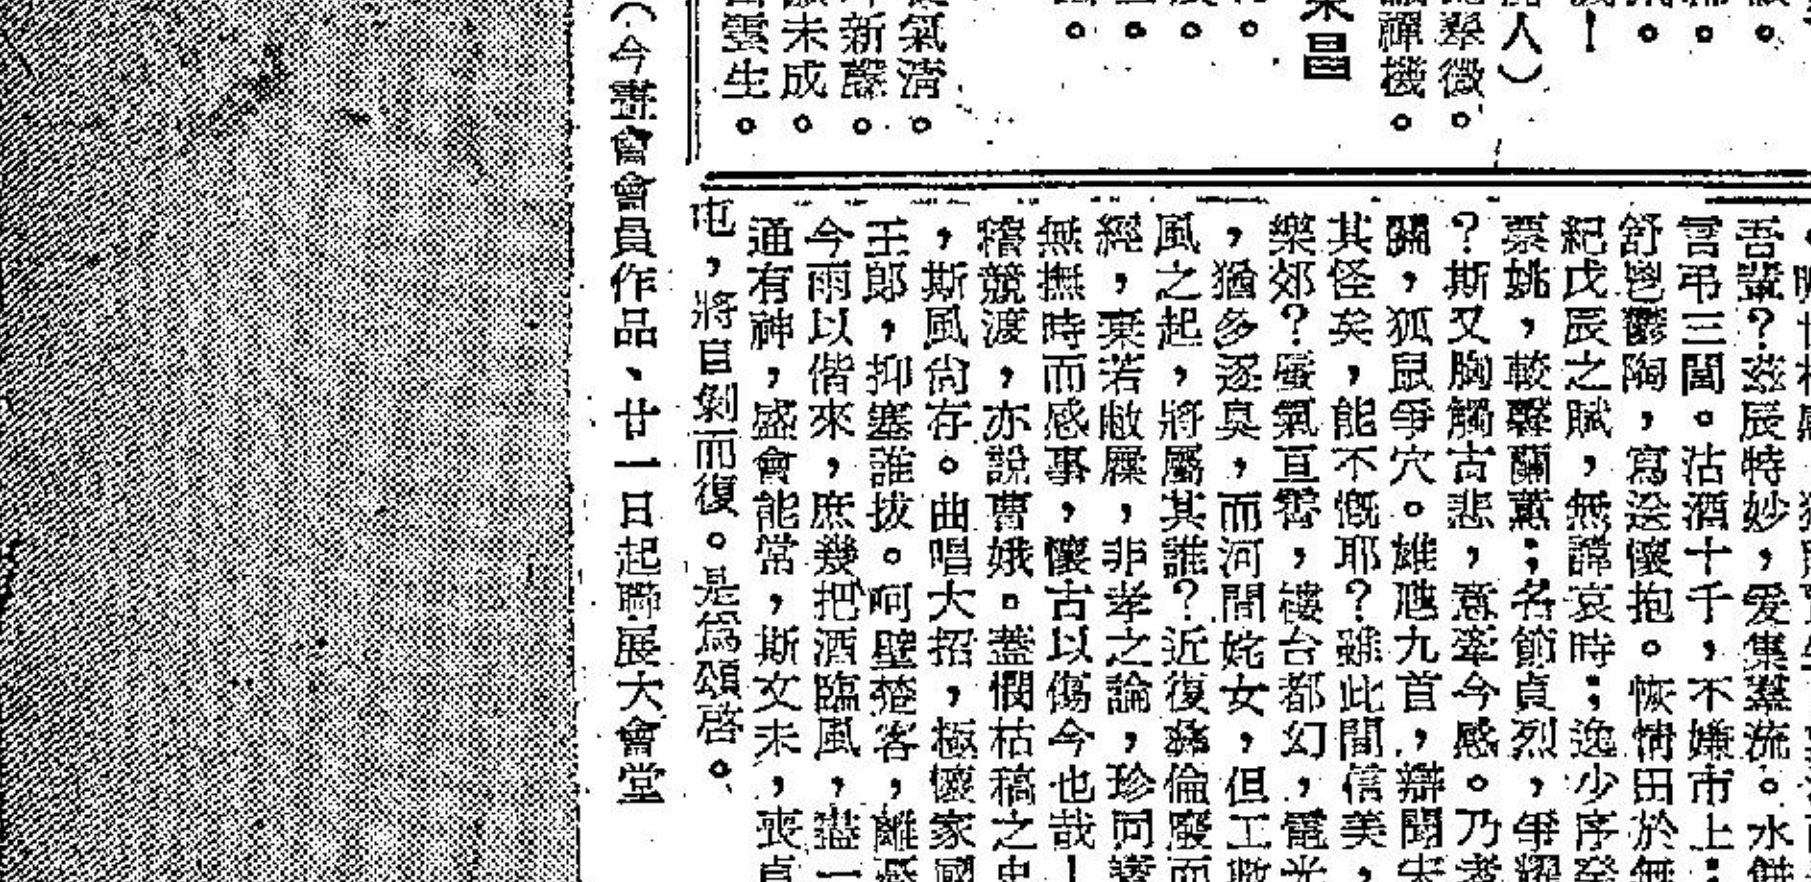 人）
舉微。
禪機。
東昌
氣清。
新聲。
未成。
雲生。
吾輩？茲辰特妙，爰集羣流。水
言弔三閭。沽酒十千，不嫌市上；
舒鬯鬱陶，寫送懷抱。恢情田於無
紀戊辰之賦，無諱哀時；逸少序癸
票姚，較馨蘭蕙；名節貞烈，爭耀
？斯又胸觸古悲，意牽今感。乃考
關，狐鼠爭穴。雄虺九首，辯聞宋
其怪矣，能不慨耶？雖此間信美，
樂郊？蜃氣亘霄，樓台都幻，電光
，猶多逐臭，而河間姹女，但工數
風之起，將屬其誰？近復彝倫廢而
經，棄若敝屣，非孝之論，珍同
無撫時而感事，懷古以傷今也哉！
稽競渡，亦說曹娥。蓋憫枯稿之忠
，斯風尙存。曲唱大招，極懷家國
王郎，抑塞誰拔。呵壁楚客，離憂
今雨以偕來，庶幾把酒臨風，盡一
通有神，盛會能常，斯文未，喪貞
屯，將自剝而復。是爲頌啓。
（今畫會會員作品、廿一日起聯展大會堂